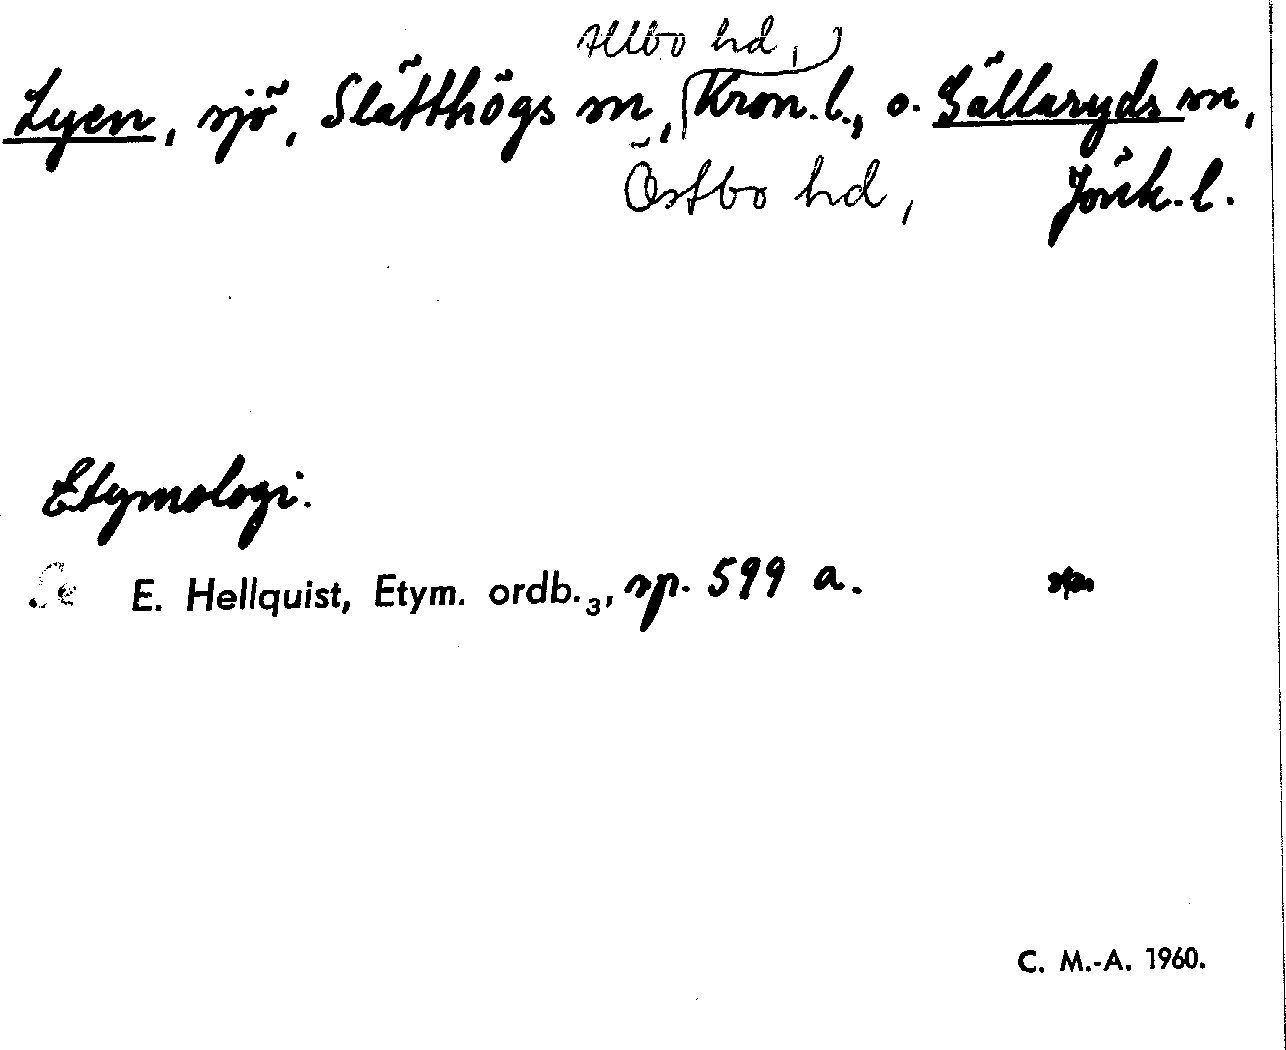 Allbo hd,
Lyen, sjö, Slätthögs sn, Kron. l., o. Gällaryds sn,
Östbo hd, Jönk. l.
Etymologi.
Se E. Hellquist, Etym. ordb.₃, sp. 599 a.
C. M.-A. 1960.